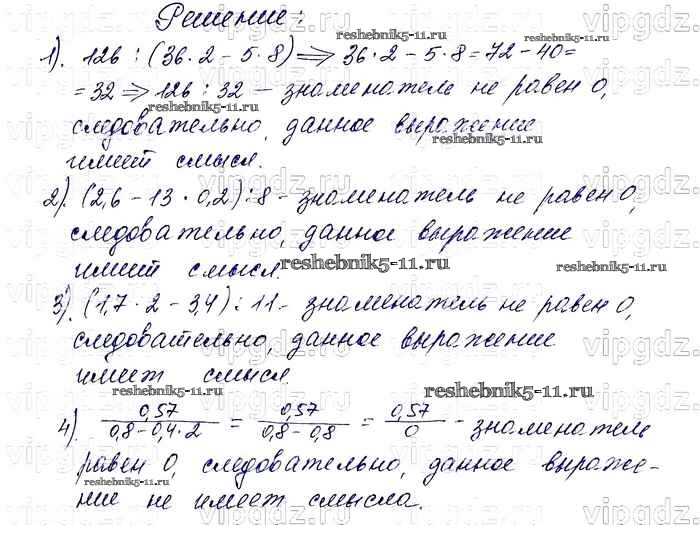 Решение:
1). 126 : (36·2 - 5·8) ⟹ 36·2 - 5·8 = 72 - 40 =
= 32 ⟹ 126 : 32 - знаменатель не равен 0,
следовательно, данное выражение
имеет смысл.
2). (2,6 - 13 · 0,2) : 8 - знаменатель не равен 0,
следовательно, данное выражение
имеет смысл.
3). (1,7 · 2 - 3,4) : 11 - знаменатель не равен 0,
следовательно, данное выражение
имеет смысл.
4) 0,57/(0,8-0,4·2) = 0,57/(0,8-0,8) = 0,57/0 - знаменатель
равен 0, следовательно, данное выраже-
ние не имеет смысла.
reshebnik5-11.ru
reshebnik5-11.ru
reshebnik5-11.ru
reshebnik5-11.ru
reshebnik5-11.ru
reshebnik5-11.ru
reshebnik5-11.ru
vipgdz.ru